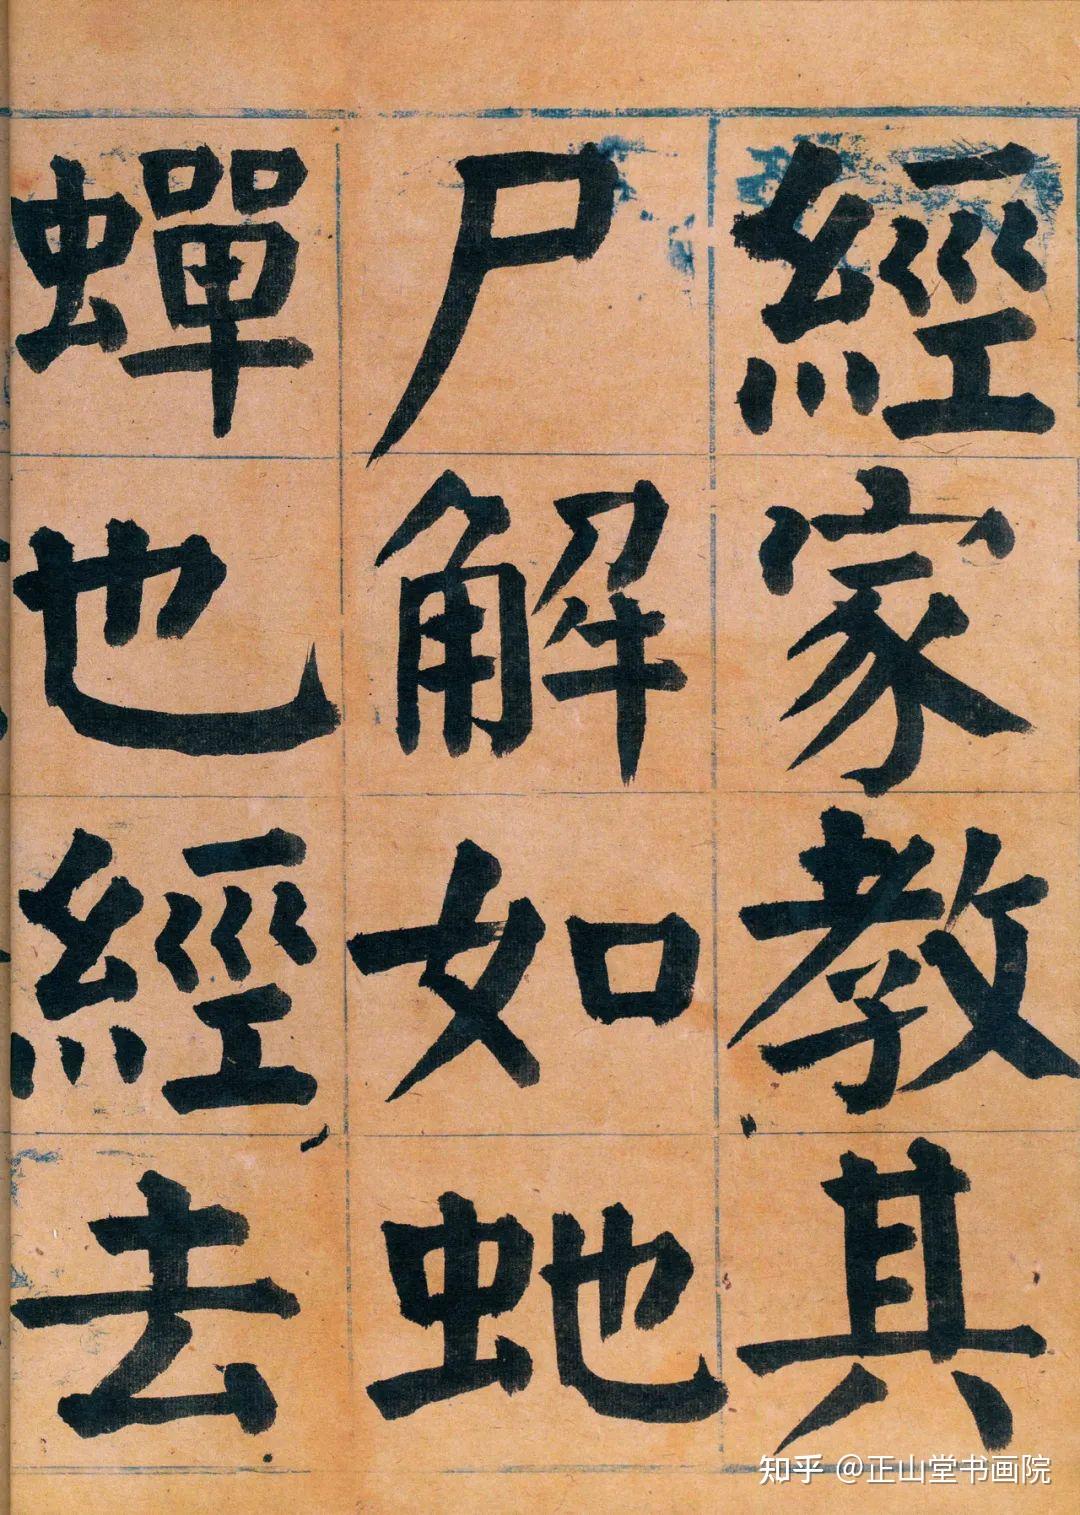 經家教其
尸解如虵
蟬也經去
知乎 @正山堂书画院